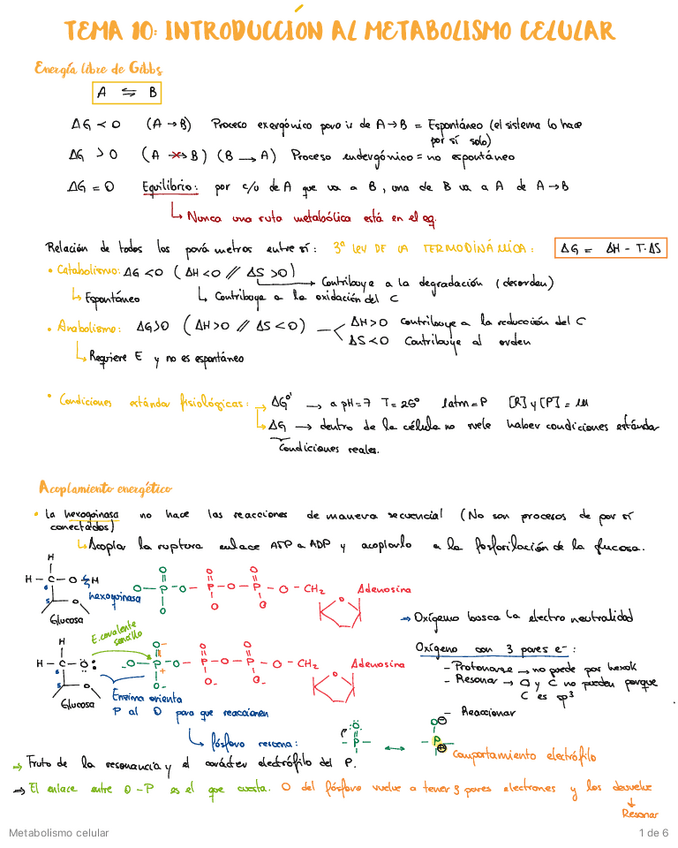 TEMA 10: INTRODUCCIÓN AL METABOLISMO CELULAR
Energía libre de Gibbs
A ⇋ B
ΔG < 0 (A → B) Proceso exergónico para ir de A → B = Espontáneo (el sistema lo hace
por sí solo)
ΔG > 0 (A → B) (B → A) Proceso endergónico = no espontáneo
ΔG = 0 Equilibrio: por c/u de A que va a B, una de B va a A de A → B
↳ Nunca una ruta metabólica está en el eq.
Relación de todos los parámetros entre sí: 3ª LEY DE LA TERMODINÁMICA: ΔG = ΔH - T·ΔS
• Catabolismo: ΔG < 0 (ΔH < 0 // ΔS > 0)
→ Contribuye a la degradación (desorden)
↳ Espontáneo ↳ Contribuye a la oxidación del C
• Anabolismo: ΔG > 0 (ΔH > 0 // ΔS < 0) ΔH > 0 Contribuye a la reducción del C
ΔS < 0 Contribuye al orden
↳ Requiere E y no es espontáneo
• Condiciones estándar fisiológicas: → ΔG°' → a pH = 7 T = 25° 1atm = P [R] y [P] = 1M
↳ ΔG → dentro de la célula no suele haber condiciones estándar
Condiciones reales.
Acoplamiento energético
• La hexoquinasa no hace las reacciones de manera secuencial (No son procesos de por sí
conectados)
↳ Acopla la ruptura enlace ATP a ADP y acoplarlo a la fosforilación de la glucosa.
H
H - C - O H
hexoquinasa
O - P - O - P - O - P - O - CH₂ Adenosina
Glucosa
→ Oxígeno busca la electro neutralidad
E. covalente
sencillo
Oxígeno con 3 pares e⁻:
H
H - C - O
O - P - O - P - O - P - O - CH₂ Adenosina
- Protonarse → no puede por hexok
- Resonar → O y C no pueden porque
C es sp³
Glucosa
Enzima orienta
P al O para que reaccionen
- Reaccionar
↳ fósforo resona:
comportamiento electrófilo
⇒ Fruto de la resonancia y el carácter electrófilo del P.
→ El enlace entre O-P es el que cuesta. O del fósforo vuelve a tener 3 pares electrones y los devuelve
↓
Resonar
Metabolismo celular
1 de 6